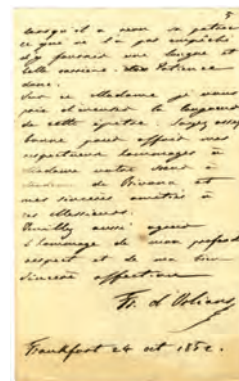 5
lorsqu'il a revu sa patrie
ce que ne l'a pas empêché
d'y fournir une longue et
belle carrière. Patience
donc.
Sur ce Madame je vous
prie d'excuser la longueur
de cette épitre. Soyez assez
bonne pour offrir mes
respectueux hommages à
Madame votre à
de et
mes sincères amitiés à
ces Messieurs.
Veuillez aussi agréer
l'hommage de mon profond
respect et de ma bien
sincère affection
Fr. d'Orléans
Frankfort 24 oct 1852.